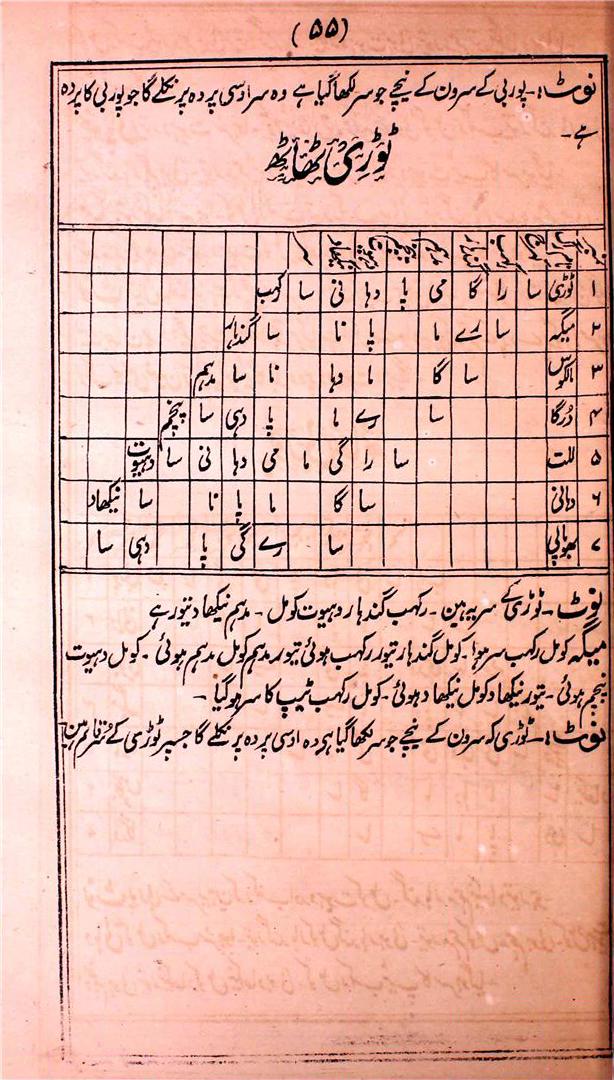 (۵۵)
نوٹ:۔ پوربی کے سرون کے نیچے جو سر لکھا گیا ہے وہ سر اوسی پردہ پر نکلے گا جو پوربی کا پردہ
ہے۔
ٹوڑی ٹھاٹھ
کھرج رکھب گندہار مدہم پنچم دہیوت نیکھاد
۱ ٹوڑی سا را گا می پا دہا نی سا رکھب
۲ میگہ سا رے ما پا نا سا گندہار
۳ مالکوس سا گا ما دہا نا سا مدہم
۴ درگا سا رے ما پا دہی سا پنچم
۵ للت سا را گی ما می دہا نی سا دہیوت
۶ دہانی سا گا ما پا نا سا نیکھاد
۷ بھوپالی سا رے گی پا دہی سا
نوٹ۔ ٹوڑی کے سر یہ ہین۔ رکھب گندہار دہیوت کومل۔ مدہم نیکھاد تیور ہے
میگہ کومل رکھب سر ہوا۔ کومل گندہار تیور رکھب ہوئی تیور مدہم کومل مدہم ہوئی۔ کومل دہیوت
پنچم ہوئی۔ تیور نیکھاد کومل نیکھاد ہوئی۔ کومل رکھب ٹیپ کا سر ہو گیا۔
نوٹ:۔ ٹوڑی کہ سرون کے نیچے جو سر لکھا گیا ہر دہ اوسی پردہ پر نکلے گا جسپر ٹوڑی کے سر قائم ہین